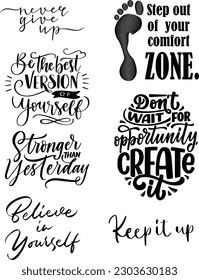 never
give
up
Step out
of your
comfort
ZONE.
Be the best
VERSION
OF
Yourself
Don't
WAIT FOR
opportunity
CREATE
it
Stronger
THAN
Yesterday
Believe
in
Yourself
Keep it up
shutterstock.com · 2303630183